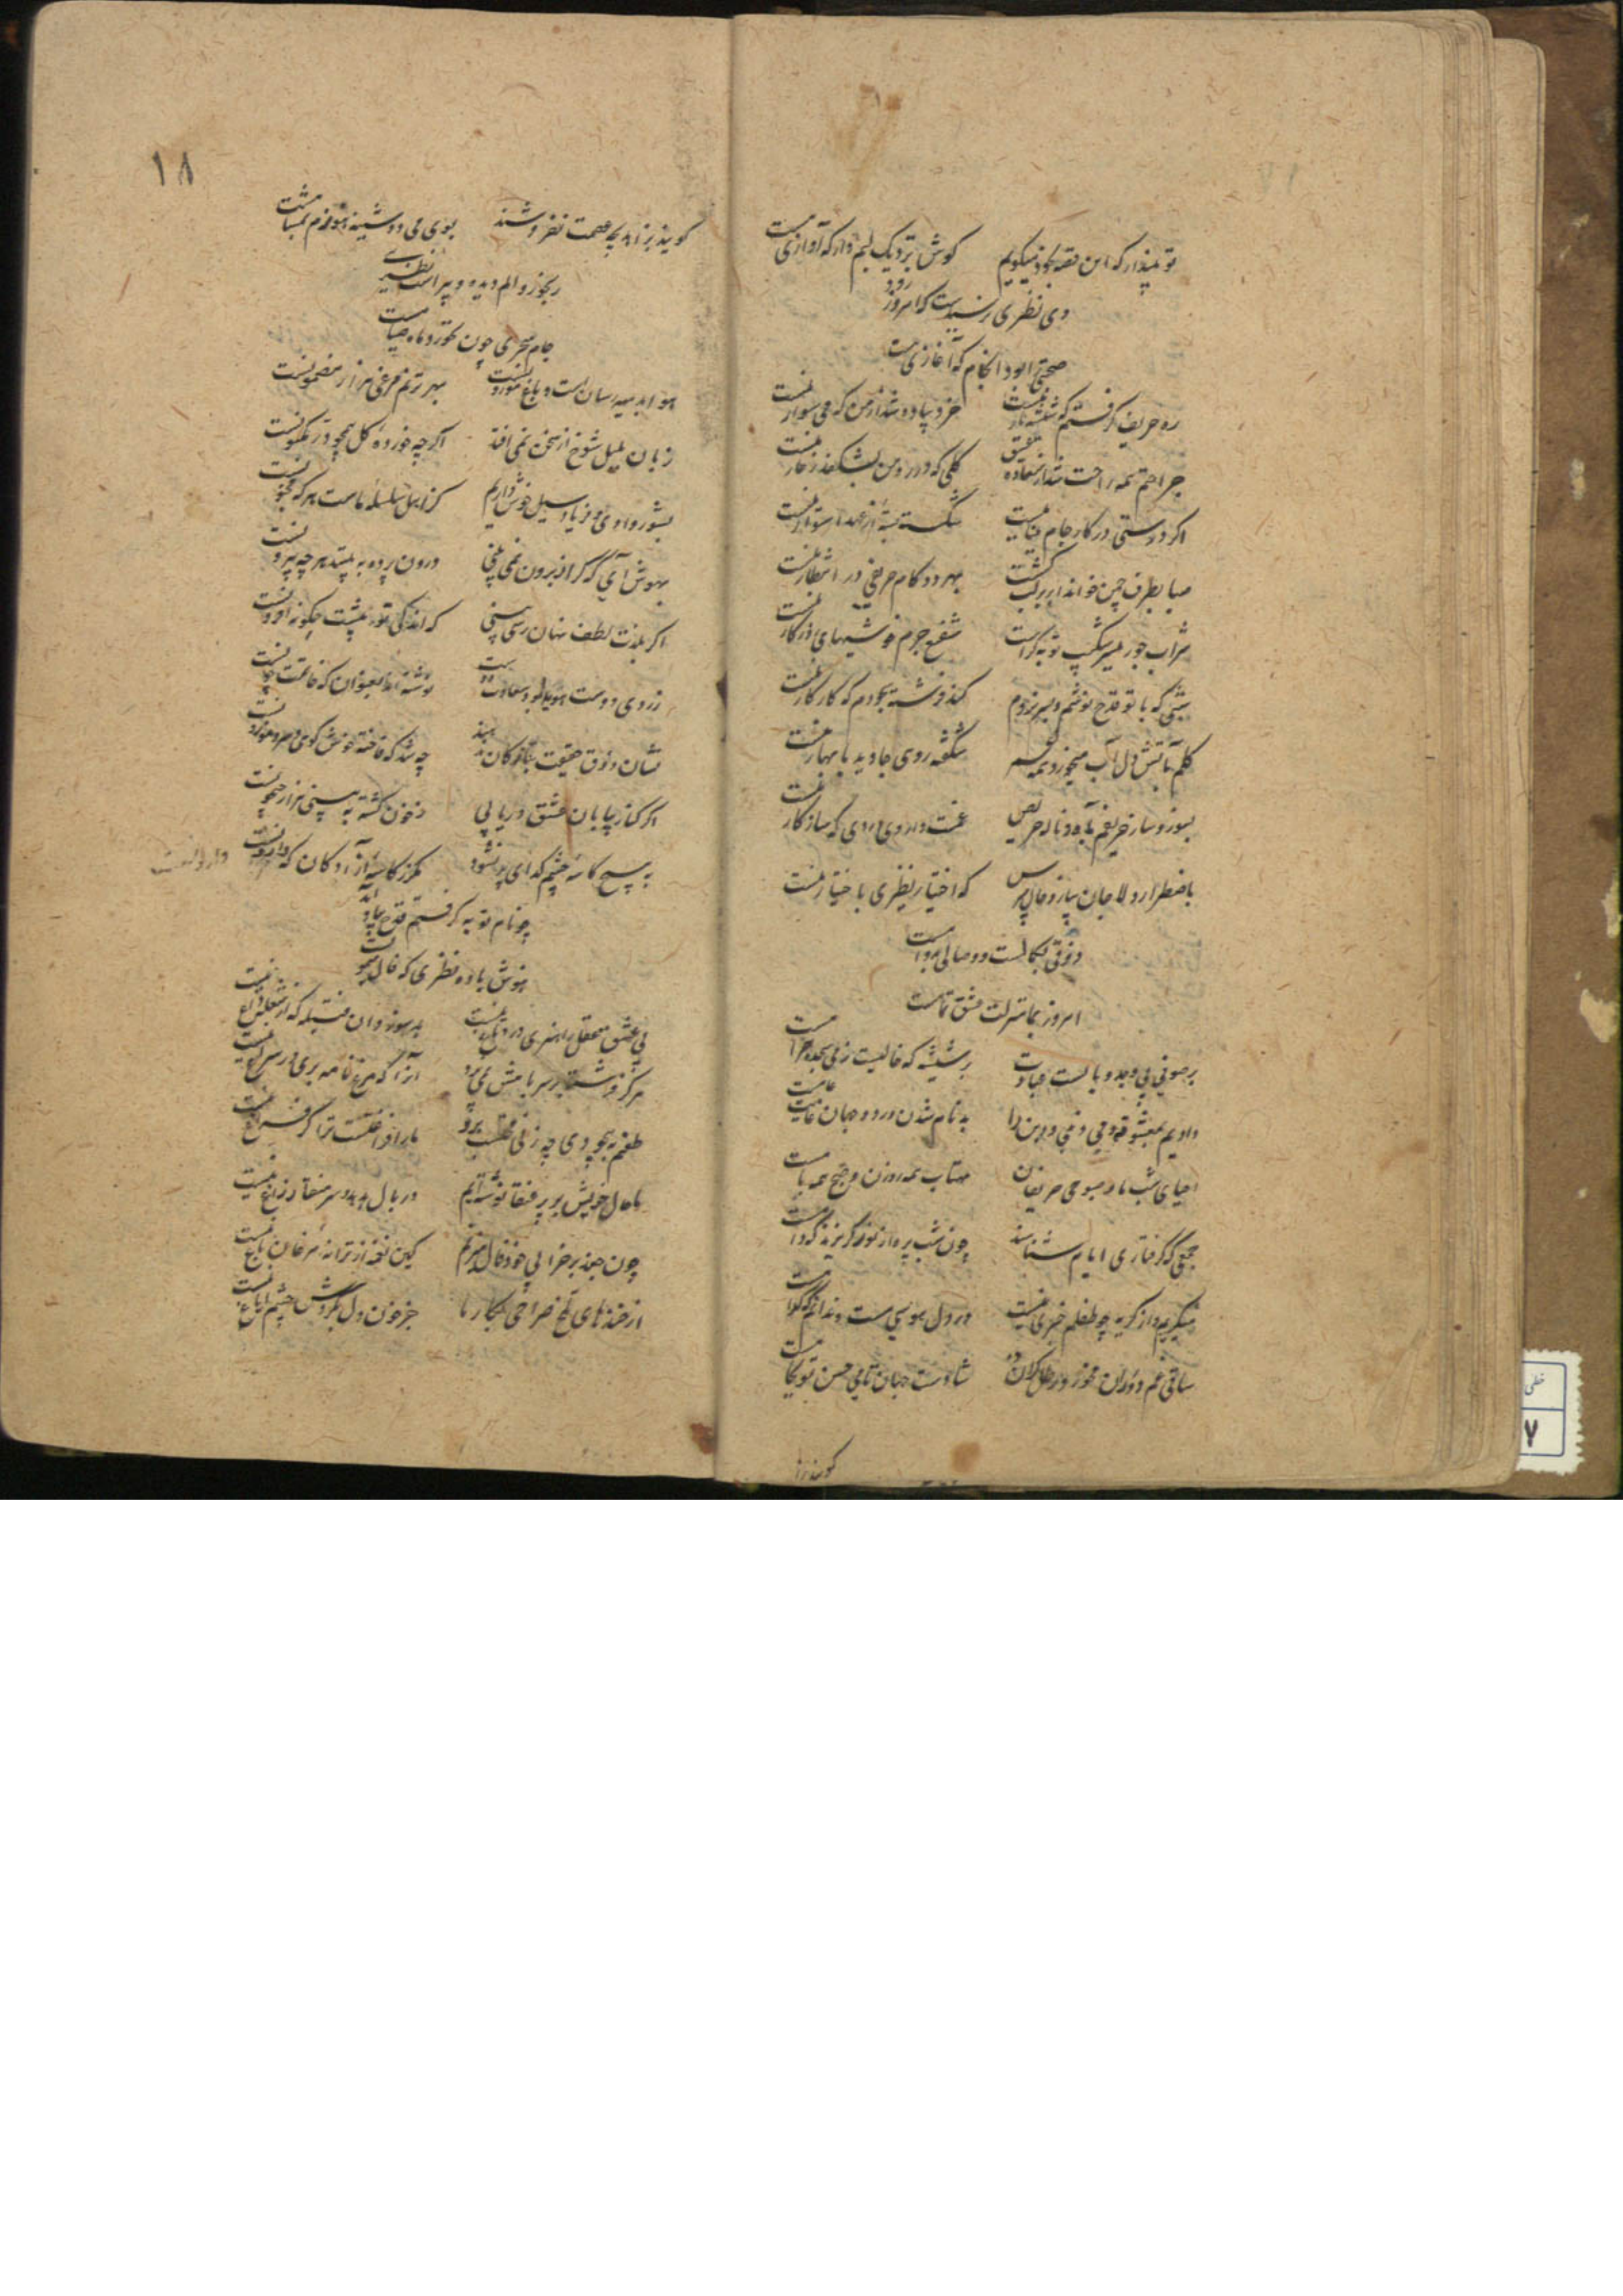 تو مپندار که این قصه بخود میگویم گوش نزدیک لبم دار که آوازی هست
دی نظیری رسیدست که امروز رود
صحبتی را بود انجام که آغازی هست
ره حریف گرفتم که شیشه بارش نیست خرد پیاده شد از من که می سوارش نیست
جراحتم همه راحت شد از عشق گلی که در ره من بشکفد ز خارش نیست
اگر درستی در کار جام مینا نیست شکسته بسته از عهد استوارش نیست
صبا بطرف چمن خواند ابر بر لب کشت بهر دو گام حریفی در انتظارش نیست
شراب جور شکیب توبه گراست شفیع جرم های در کارش نیست
شبی که با تو قدح نوشم و سر نزدم کند فرشته سجودم که کار کارش نیست
گلم بآتش دل آب میخورد همه شکفته روی جاوید با بهارش نیست
بسوز و ساز حریفم بآه و ناله حریص غمت داروی دردی که سازگارش نیست
باضطرار دلا جان بباز و حال مپرس که اختیار نظیری باختیارش نیست
ذوقی بکمالست و وصالی بدوامست
امروز بما شربت عشق تمامست
بر صوفی بی وجد وبالست عبادت بر شیشه که خالیست ز می سجده حرامست
دادیم بمعشوقه و می دنیی و دین را بدنام شدن در دو جهان غایت
احیای شب ما و صبوحی حریفان مهتاب همه روزن و صبح همه بامست
جمعی که گرفتاری ایام شناسند چون شب پره از نور گریزند که دامست
میگریم و از گریه چو طفلم خبری نیست در دل هوسی هست و ندانم که کدامست
ساقی غم دوران مخور و رطل گران ده شادست جهان تا می حسن تو بجامست
گویند بزا
۱۸
گویند بزاهد که عصمت نفروشند بوی می دوشینه هنوزم بمشامست
رنجور و الم دیده و پیر است نظیری
جام سحری چون نخورد ماه صیامست
هوا بسیه رسان است و باغ موزونست بهر ترنم مرغی هزار مضمونست
زبان بلبل شوخ از سخن نمی افتد اگرچه خورده گل همچو در مکنونست
بشور وادی و فریاد سیل خوش داریم کز اهل سلسله ماست هر که مجنونست
بهوش آی که گر از برون نمی بینی درون پرده به بیند هر چه بیرونست
اگر بلذت لطف نهان رسی بینی که اندکی تو ز بیشت چگونه افزونست
ز روی دوست هویدا بود سعادت نوشته اند بعنوان که خاتمت چونست
نشان ذوق حقیقت به تازگان ندهند چه شد که فاخته خوش گوی و سرو موزونست
اگر کنار بیابان عشق دریابی ز خون کشته به بینی هزار جیحونست
به هیچ کاسه چشم گدای پر نشود مگر ز کاسه آزادگان که وارونست
وارونست
چو نام توبه گرفتم قدح بیاد آمد
بنوش باده نظیری که فال میمونست
بی عشق عقل را هنری در دماغ نیست بد سوزد آن فتیله که از شعله داغ نیست
هرگز فرشته بر سر بامش نمی پرد آنرا که مرغ نامه بری در سراغ نیست
طعنم به بیخودی چه زنی محتسب برو ما را فراغتست ترا گر فراغ نیست
ما حال خویش بر پر عنقا نوشته ایم در بال هدهد و سر منقار زاغ نیست
چون جغد بر خرابی خود فال میزنم کین نغمه از ترانه مرغان باغ نیست
از خنده های تلخ صراحی بکار ما جز خون دل بگردش چشم ایاغ نیست